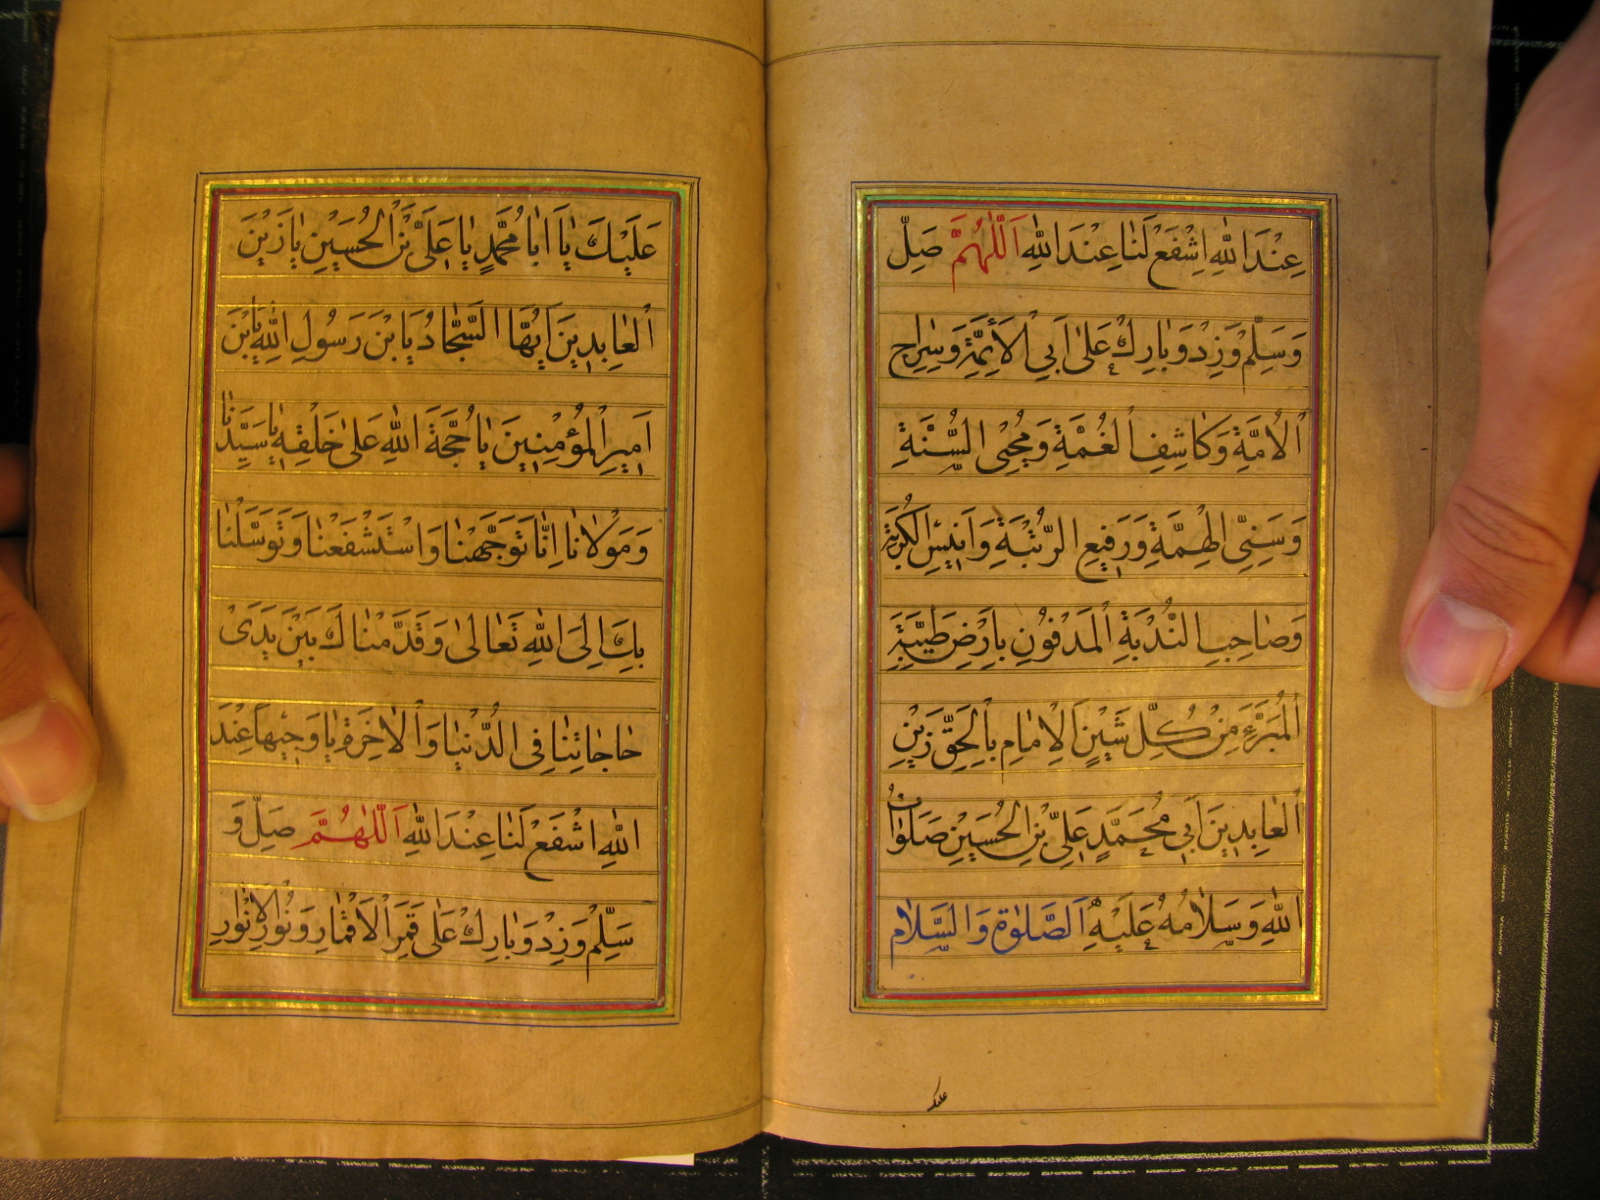 عِنْدَ اللهِ اِشْفَعْ لَنَا عِنْدَ اللهِ اَللّٰهُمَّ صَلِّ
وَسَلِّمْ وَزِدْ وَبَارِكْ عَلىٰ اَبِي الْاَئِمَّةِ وَسِرَاجِ
الْاُمَّةِ وَكَاشِفِ الْغُمَّةِ وَمُحْيِى السُّنَّةِ
وَسَنِيِّ الْهِمَّةِ وَرَفِيعِ الرُّتْبَةِ وَاَنِيسِ الْكُرْبَةِ
وَصَاحِبِ النُّدْبَةِ الْمَدْفُونِ بِاَرْضِ طَيْبَةِ
الْمُبَرَّءِ مِنْ كُلِّ شَيْنٍ اَلْاِمَامِ بِالْحَقِّ زَيْنِ
الْعَابِدِينَ اَبِي مُحَمَّدٍ عَلِيِّ بْنِ الْحُسَيْنِ صَلَوَاتُ
اللهِ وَسَلَامُهُ عَلَيْهِ اَلصَّلٰوةُ وَالسَّلَامُ
عليك
عَلَيْكَ يَا اَبَا مُحَمَّدٍ يَا عَلِيَّ بْنَ الْحُسَيْنِ يَا زَيْنَ
الْعَابِدِينَ اَيُّهَا السَّجَّادُ يَا بْنَ رَسُولِ اللهِ يَا بْنَ
اَمِيرِ الْمُؤْمِنِينَ يَا حُجَّةَ اللهِ عَلىٰ خَلْقِهِ يَا سَيِّدَنَا
وَمَوْلَانَا اِنَّا تَوَجَّهْنَا وَاسْتَشْفَعْنَا وَتَوَسَّلْنَا
بِكَ اِلَى اللهِ تَعَالىٰ وَقَدَّمْنَاكَ بَيْنَ يَدَىْ
حَاجَاتِنَا فِى الدُّنْيَا وَالْاٰخِرَةِ يَا وَجِيهًا عِنْدَ
اللهِ اشْفَعْ لَنَا عِنْدَ اللهِ اَللّٰهُمَّ صَلِّ وَ
سَلِّمْ وَزِدْ وَبَارِكْ عَلىٰ قَمَرِ الْاَقْمَارِ وَنُورِ الْاَنْوَارِ